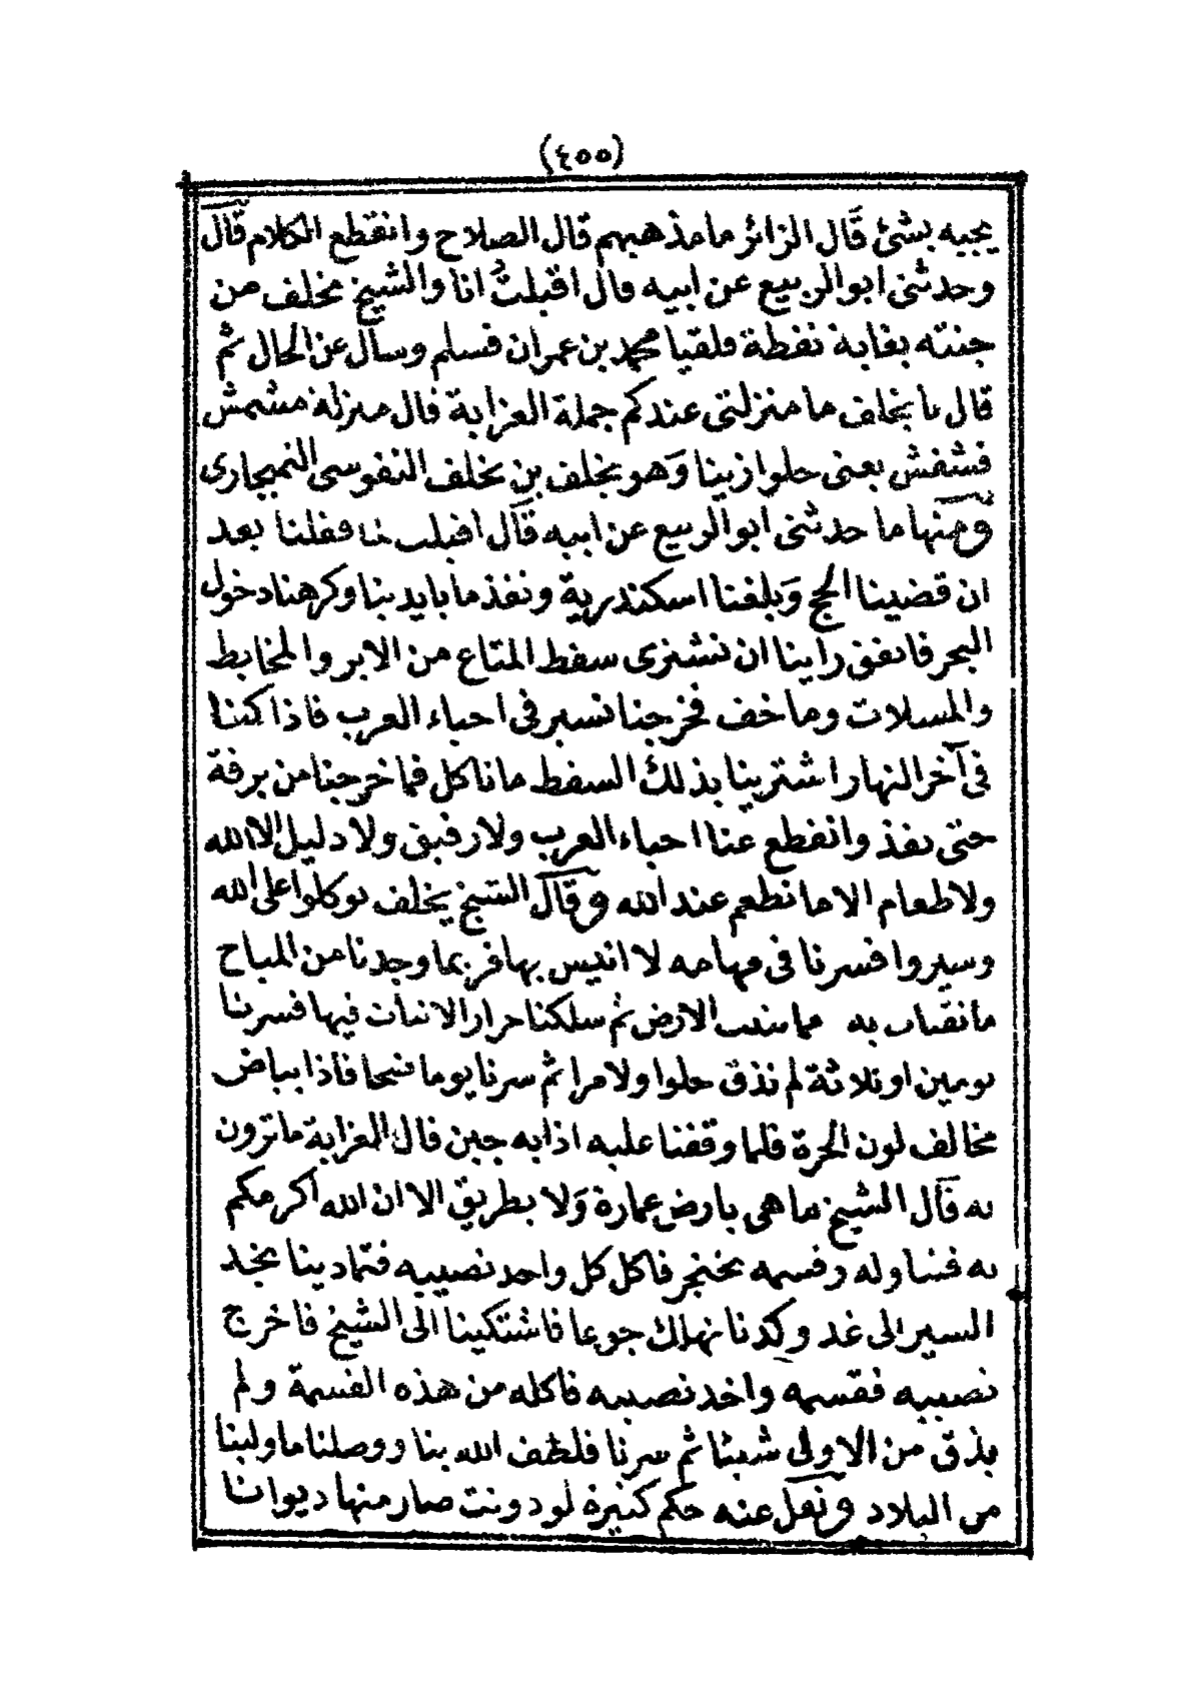 (٤٥٥)
يجيبه بشئ قال الزائر ما مذهبهم قال الصلاح وانقطع الكلام قال
وحدثنى ابو الربيع عن ابيه قال اقبلت انا والشيخ يخلف من
جنته بغابة نفطة فلقيا محمد بن عمران فسلم وسأل عن الحال ثم
قال يا يخلف ما منزلتى عندكم جملة العزابة قال منزلة مشمش
فشفش يعنى حلوا زبينا وهو يخلف بن يخلف النفوسى التميجارى
ومنها ما حدثنى ابو الربيع عن ابيه قال اقبلت انا وقفلنا بعد
ان قضينا الحج وبلغنا اسكندرية ونفذ ما بايدينا وكرهنا دخول
البحر فاتفق راينا ان نشترى سفط المتاع من الابر والمخايط
والمسلات وما خف فخرجنا نسير فى احياء العرب فاذا كنا
فى آخر النهار اشترينا بذلك السفط ما ناكل فما خرجنا من برقة
حتى نفذ وانقطع عنا احياء العرب ولا رفيق ولا دليل الا الله
ولا طعام الا ما نطعم عند الله وقال الشيخ يخلف توكلوا على الله
وسيروا فسرنا فى مهامه لا انيس بها فربما وجدنا من المباح
ما نقتات به مما تنبت الارض ثم سلكنا حرار الا نبات فيها فسرنا
يومين او ثلاثة لم نذق حلوا ولا مرا ثم سرنا يوما فاذا ببياض
مخالف لون الحرة فلما وقفنا عليه اذا به جبن قال العزابة ما ترون
به قال الشيخ ما هى بارض عمارة ولا بطريق الا ان الله اكرمكم
به فتناوله وقسمه بخنجر فاكل كل واحد نصيبه فتمادينا بجد
السير الى غد وكدنا نهلك جوعا فاشتكينا الى الشيخ فاخرج
نصيبه فقسمه واخذ نصيبه فاكله من هذه القسمة ولم
يذق من الاولى شيئا ثم سرنا فلطف الله بنا ووصلنا ما ولينا
من البلاد ونقل عنه حكم كثيرة لو دونت صار منها ديوانا